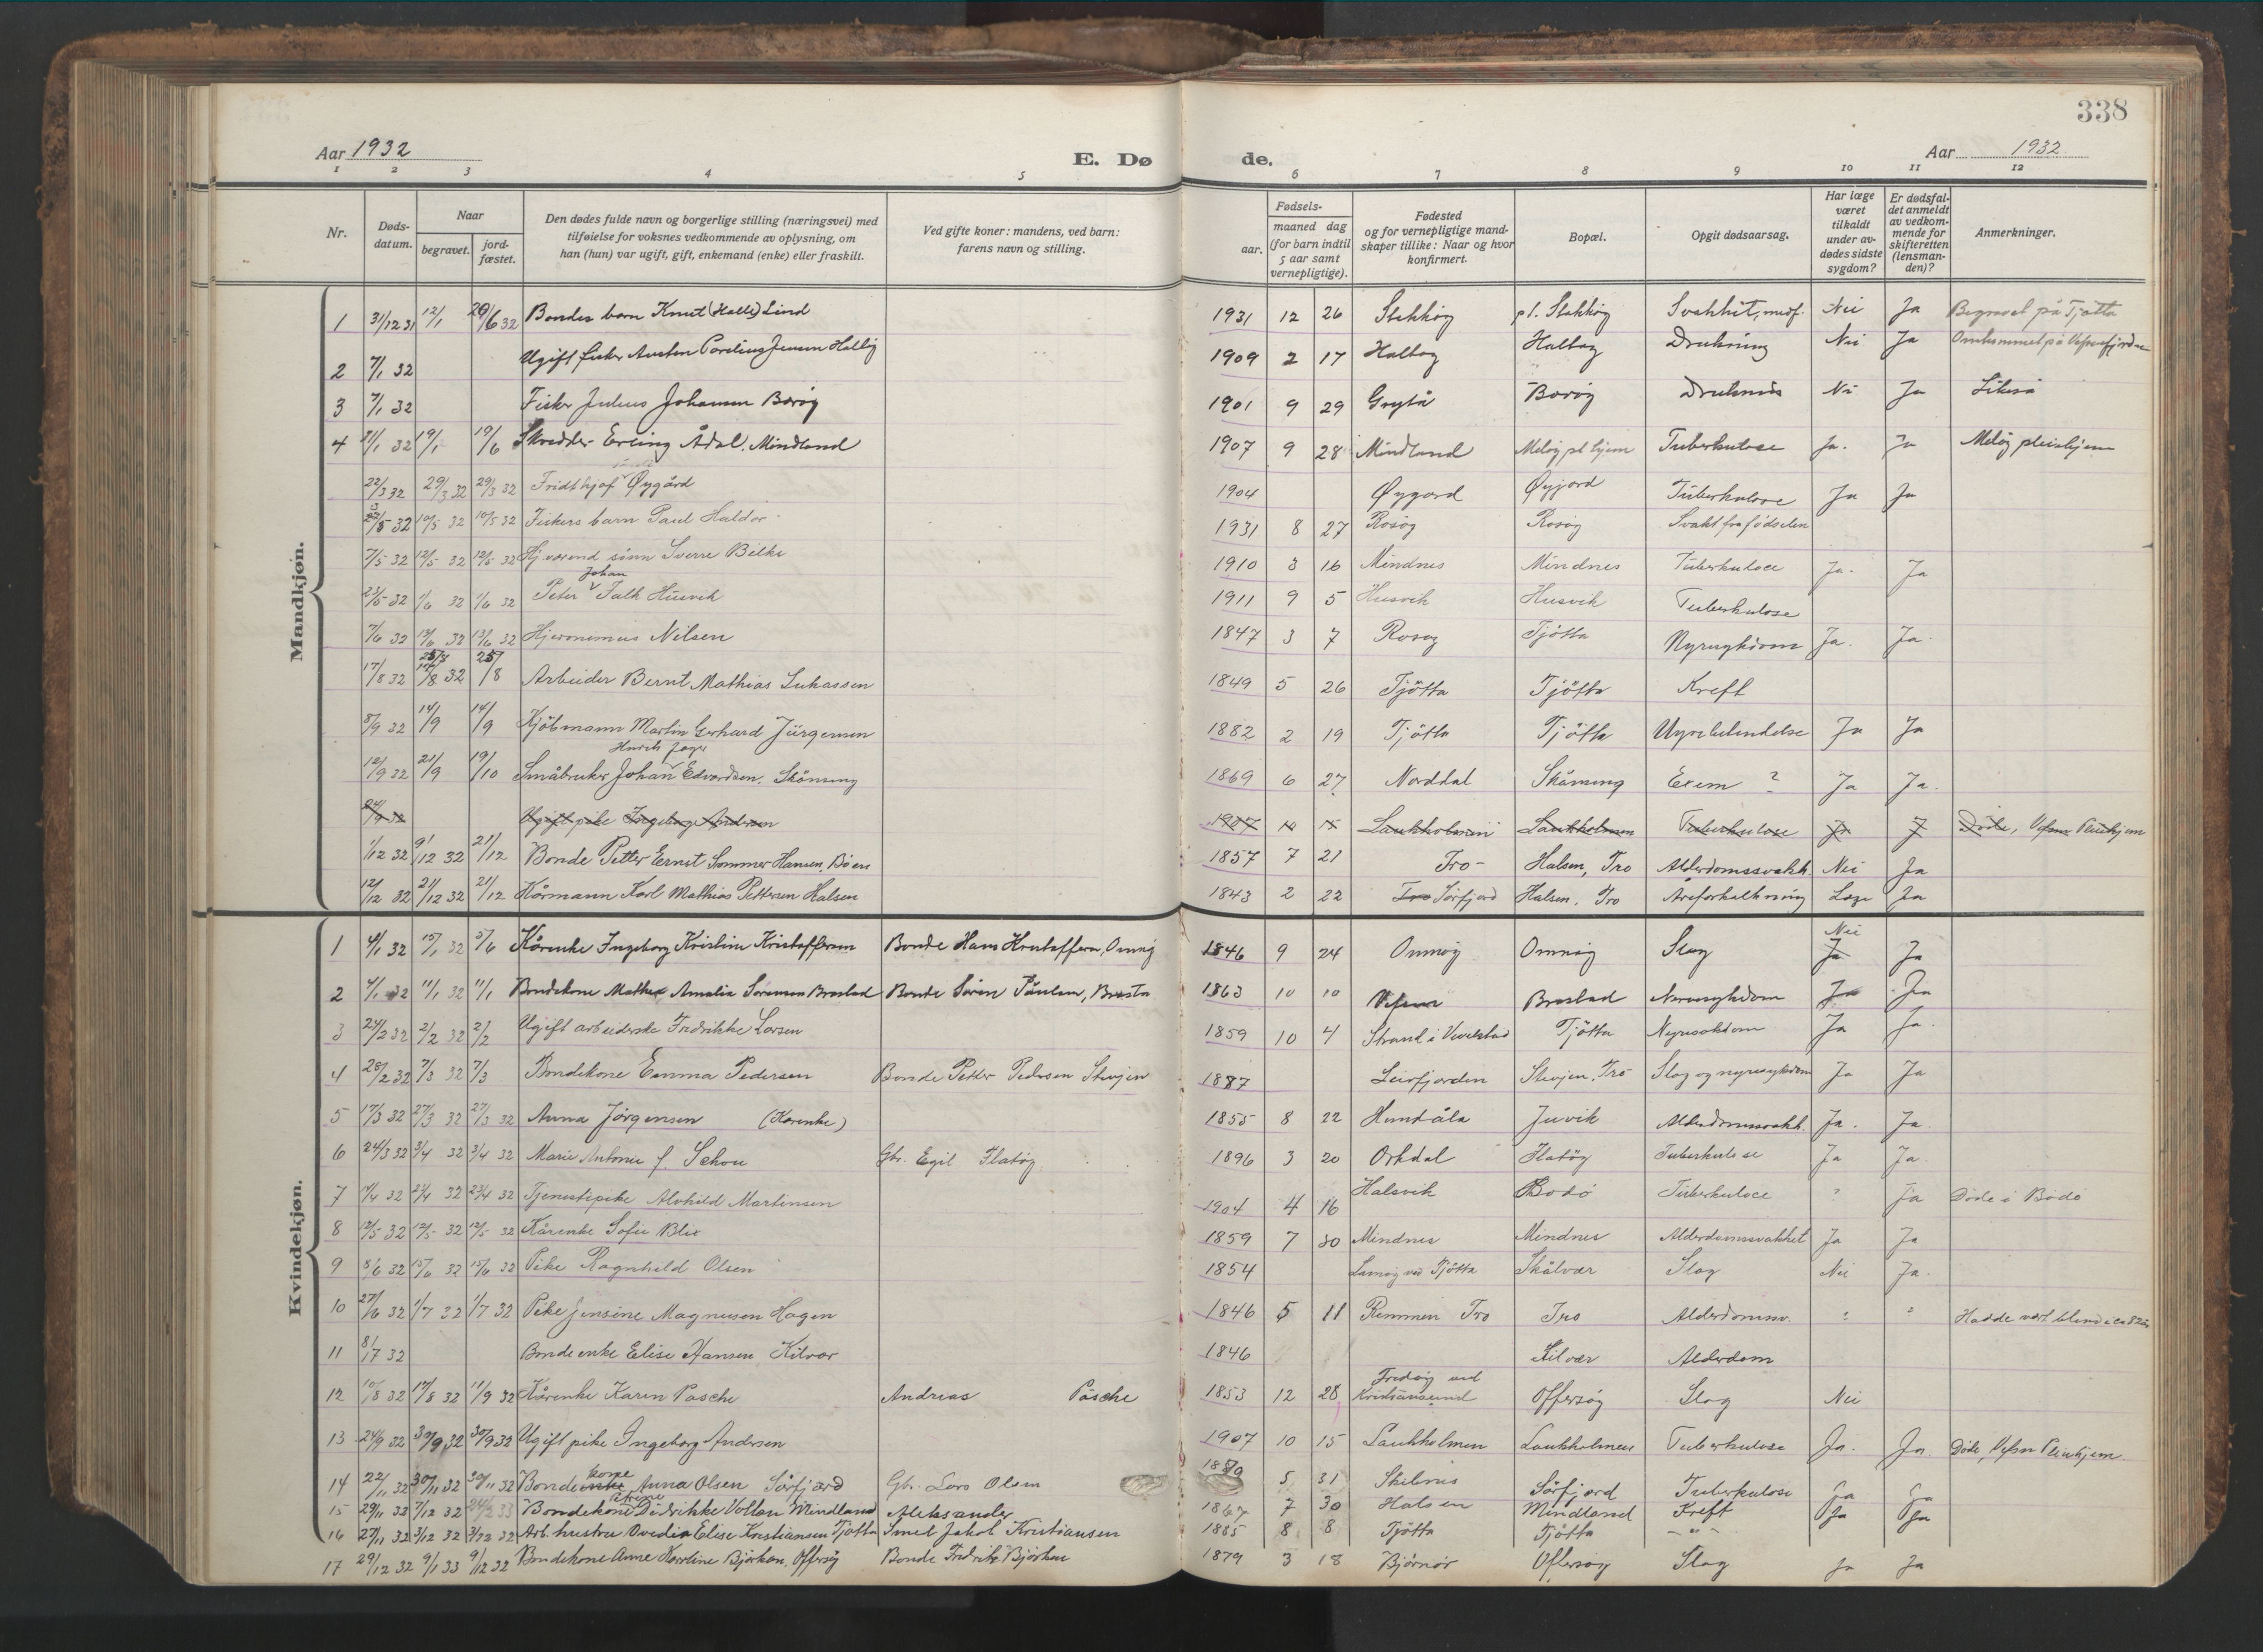 338
Aar 1932
E. Dø
de.
Aar 1932
1 2 3 4 5 6 7 8 9 10 11 12
Nr.
Døds-datum.
Naar
begravet.
jord-fæstet.
Den dødes fulde navn og borgerlige stilling (næringsvei) med
tilføielse for voksnes vedkommende av oplysning, om
han (hun) var ugift, gift, enkemand (enke) eller fraskilt.
Ved gifte koner: mandens, ved barn:
farens navn og stilling.
Fødsels-
aar.
maaned dag
(for barn indtil
5 aar samt
vernepligtige).
Fødested
og for vernepligtige mand-
skaper tillike: Naar og hvor
konfirmert.
Bopæl.
Opgit dødsaarsag.
Har læge
været
tilkaldt
under av-
dødes sidste
sygdom?
Er dødsfal-
det anmeldt
av vedkom-
mende for
skifteretten
(lensman-
den)?
Anmerkninger.
Mandkjøn.
1 31/12 31 12/1 26/6 32 Bondes barn Knut (Halle) Lind 1931 12 26 pl. Nei Ja Begravet på Tjøtta
2 7/1 32 Ugift fisker 1909 2 17 Drukning Nei Ja Omkommet på Vefsnfjorden
3 7/1 32 Fisker Julius Johansen Borøy 1901 9 29 Grytå Borøy Ja
4 32 19/1 19/6 Skredder Erling Ådal, Mindland 1907 9 28 Mindland Meløy pl hjem Tuberkulose Ja. Ja Meløy pleiehjem
22/3 32 29/3 32 29/3 32 Fridthjof Øygård 1904 Øygard Øyjord Tuberkulose Ja Ja
32 10/5 32 10/5 32 Fiskers barn Paul Haldor 1931 8 27 Rosøy Rosøy Svakt fra fødselen
7/5 32 12/5 32 12/5 32 Hj. værend sønn Sverre 1910 3 16 Mindnes Mindnes Tuberkulose Ja. Ja
23/5 32 1/6 32 1/6 32 Peter Johan Falk Husvik 1911 9 5 Husvik Husvik Tuberkulose
7/6 32 13/6 32 13/6 32 Hjeronimus Nilsen 1847 3 7 Rosøy Tjøtta Nyresykdom Ja. Ja.
17/8 32 25/8 32 25/8 Arbeider Bernt Mathias Lukassen 1849 5 26 Tjøtta Tjøtta Kreft
8/9 32 14/9 14/9 Kjøbmann Martin Gerhard Jürgensen 1882 2 19 Tjøtta Tjøtta Nyrebetendelse Ja Ja
12/9 32 21/9 19/10 Småbruker Johan Edvardsen, 1869 6 27 Norddal Exem ? Ja Ja.
24/9 32 Ugift pike Ingeborg Andersen 1907 10 15 Laukholmen Laukholmen Tuberkulose Ja J Døde, Vefsn Pleiehjem
1/12 32 9/12 32 21/12 Bonde Petter Ernst Sommer Hansen, 1857 7 21 Tro Halsen, Tro Alderdomssvakh. Nei Ja
12/12 32 21/12 32 21/12 Kårmann Karl Mathias Pettersen Halsen 1843 2 22 Tro Sørfjord Halsen, Tro Åreforkalkning Læge Ja
Kvindekjøn.
1 4/1 32 15/1 32 5/6 Kårenke Ingeborg Kristine Kristoffersen Bonde Hans Kristoffersen, 1846 9 24 Omnøy Omnøy Slag Nei Ja Ja
2 4/1 32 11/1 32 11/1 Bondekone Mathea Amalia Sørensen Brastad Bonde Søren Paulsen, 1863 10 10 Vefsn Brastad Nervesykdom Ja Ja
3 24/2 32 2/2 32 2/2 Ugift arbeiderske Fredrikke Larsen 1859 10 4 Strand i Vevelstad Tjøtta Nyresykdom Ja Ja.
4 28/2 32 7/3 32 7/3 Bondekone Emma Pedersen Bonde Petter Pedersen 1887 Leirfjorden Tro Slag og nyresykdom Ja Ja
5 17/3 32 27/3 32 27/3 32 Anna Jørgensen (Kårenke) 1855 8 22 Hundåla Juvik Alderdomssvakh. Ja. Ja.
6 24/3 32 3/4 32 3/4 32 Marie Antonie f Schou Gbr. Egil Flatøy 1896 3 20 Orkdal Flatøy Tuberkulose Ja Ja.
7 32 23/4 32 23/4 32 Tjenestepike Alvhild Martinsen 1904 4 16 Halsvik Bodø Tuberkulose ? Ja Døde i Bodø
8 12/5 32 12/5 32 12/5 32 Kårenke Sofie Blix 1859 7 30 Mindnes Mindnes Alderdomssvakhet Ja Ja
9 8/6 32 15/6 32 15/6 32 Pike Ragnhild Olsen 1854 ved Tjøtta Skålvær Slag Nei Ja.
10 27/6 32 1/7 32 1/7 32 Pike Jensine Magnusen Hagen 1846 5 11 Remmen Tro Tro Alderdomssv. ? ? Hadde vært blind i
11 32 Bondeenke Elise Hansen Kilvær 1846 Kilvær Alderdom
12 10/8 32 17/8 32 11/9 32 Kårenke Karen Pasche Andreas Pasche 1853 12 28 Fredøy ved Kristiansund Offersøy Slag Nei
13 24/9 32 30/9 32 30/9 32 Ugift pike Ingeborg Andersen 1907 10 15 Laukholmen Laukholmen Tuberkulose Ja. Ja. Døde, Vefsn Pleiehjem.
14 22/11 32 30/11 32 30/11 32 Bondekone Anna Olsen Sørfjord Gbr. Lars Olsen 5 31 Skilnes Sørfjord Tuberkulose Ja Ja
15 29/11 32 7/12 32 24/2 33 Bondekone Didrikke Voltan Mindland Aleksander 1867 7 30 Halsen Mindland Kreft Ja Ja
16 27/11 32 3/12 32 3/12 32 Arb. hustru Ovedia Elise Kristiansen Tjøtta Smed Jakob Kristiansen 1885 8 8 Tjøtta Tjøtta - " -
17 29/12 32 9/1 33 9/12 32 Bondekone Anne Karoline Bjørken, Offersøy Bonde Fredrik Bjørken 1879 3 18 Bjørnør Offersøy Slag Ja Ja